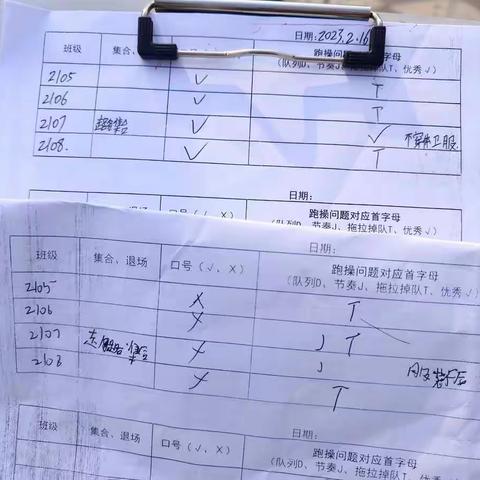 日期:2023.2.16
班级 集合、 跑操问题对应首字母
(队列D、节奏J、拖拉掉队T、优秀√)
2105 √ T
2106 √ T
2107 √ √
2108. √ T
日期:
班级 集合、退场 口号(√、X) 跑操问题对应首字母
日期:
班级 集合、退场 口号(√、X) 跑操问题对应首字母
(队列D、节奏J、拖拉掉队T、优秀√)
2105 X T
2106 X
2107 X J T
2108 X J T
日期:
班级 集合、退场 口号(√、X) 跑操问题对应首字母
(队列D、节奏J、拖拉掉队T、优秀√)